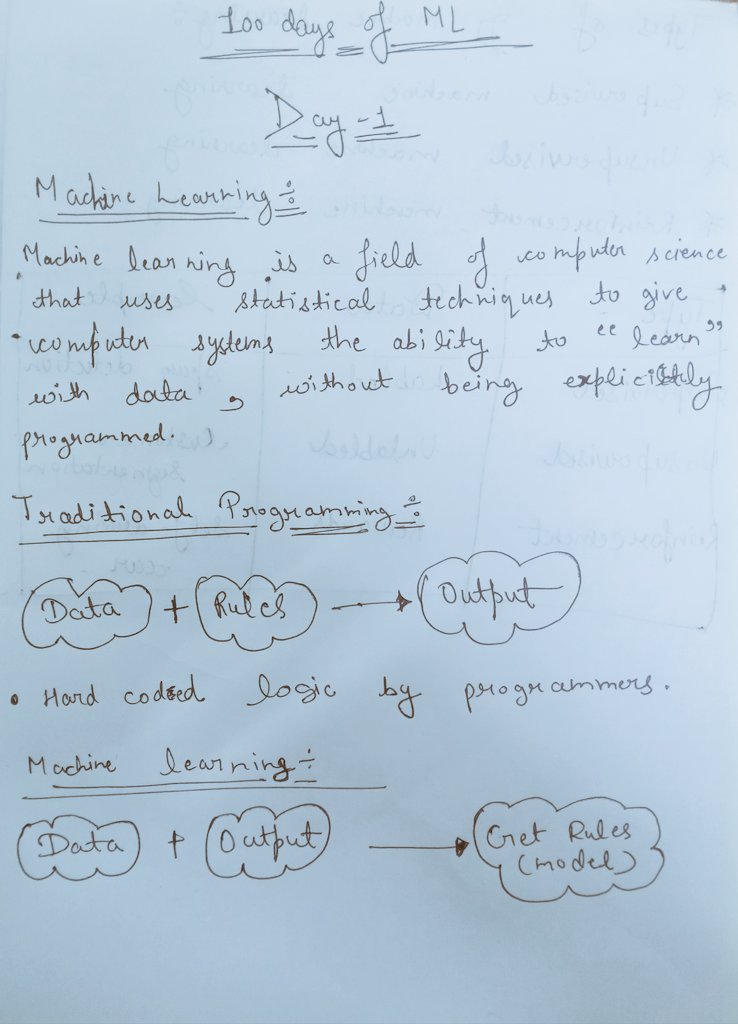 100 days of ML
Day-1
Machine Learning ÷
Machine learning is a field of computer science
that uses statistical techniques to give
computer systems the ability to "learn"
with data, without being explicitly
programmed.
Traditional Programming ÷
Data + Rules → Output
• Hard coded logic by programmers.
Machine learning ÷
Data + Output → Get Rules
(model)